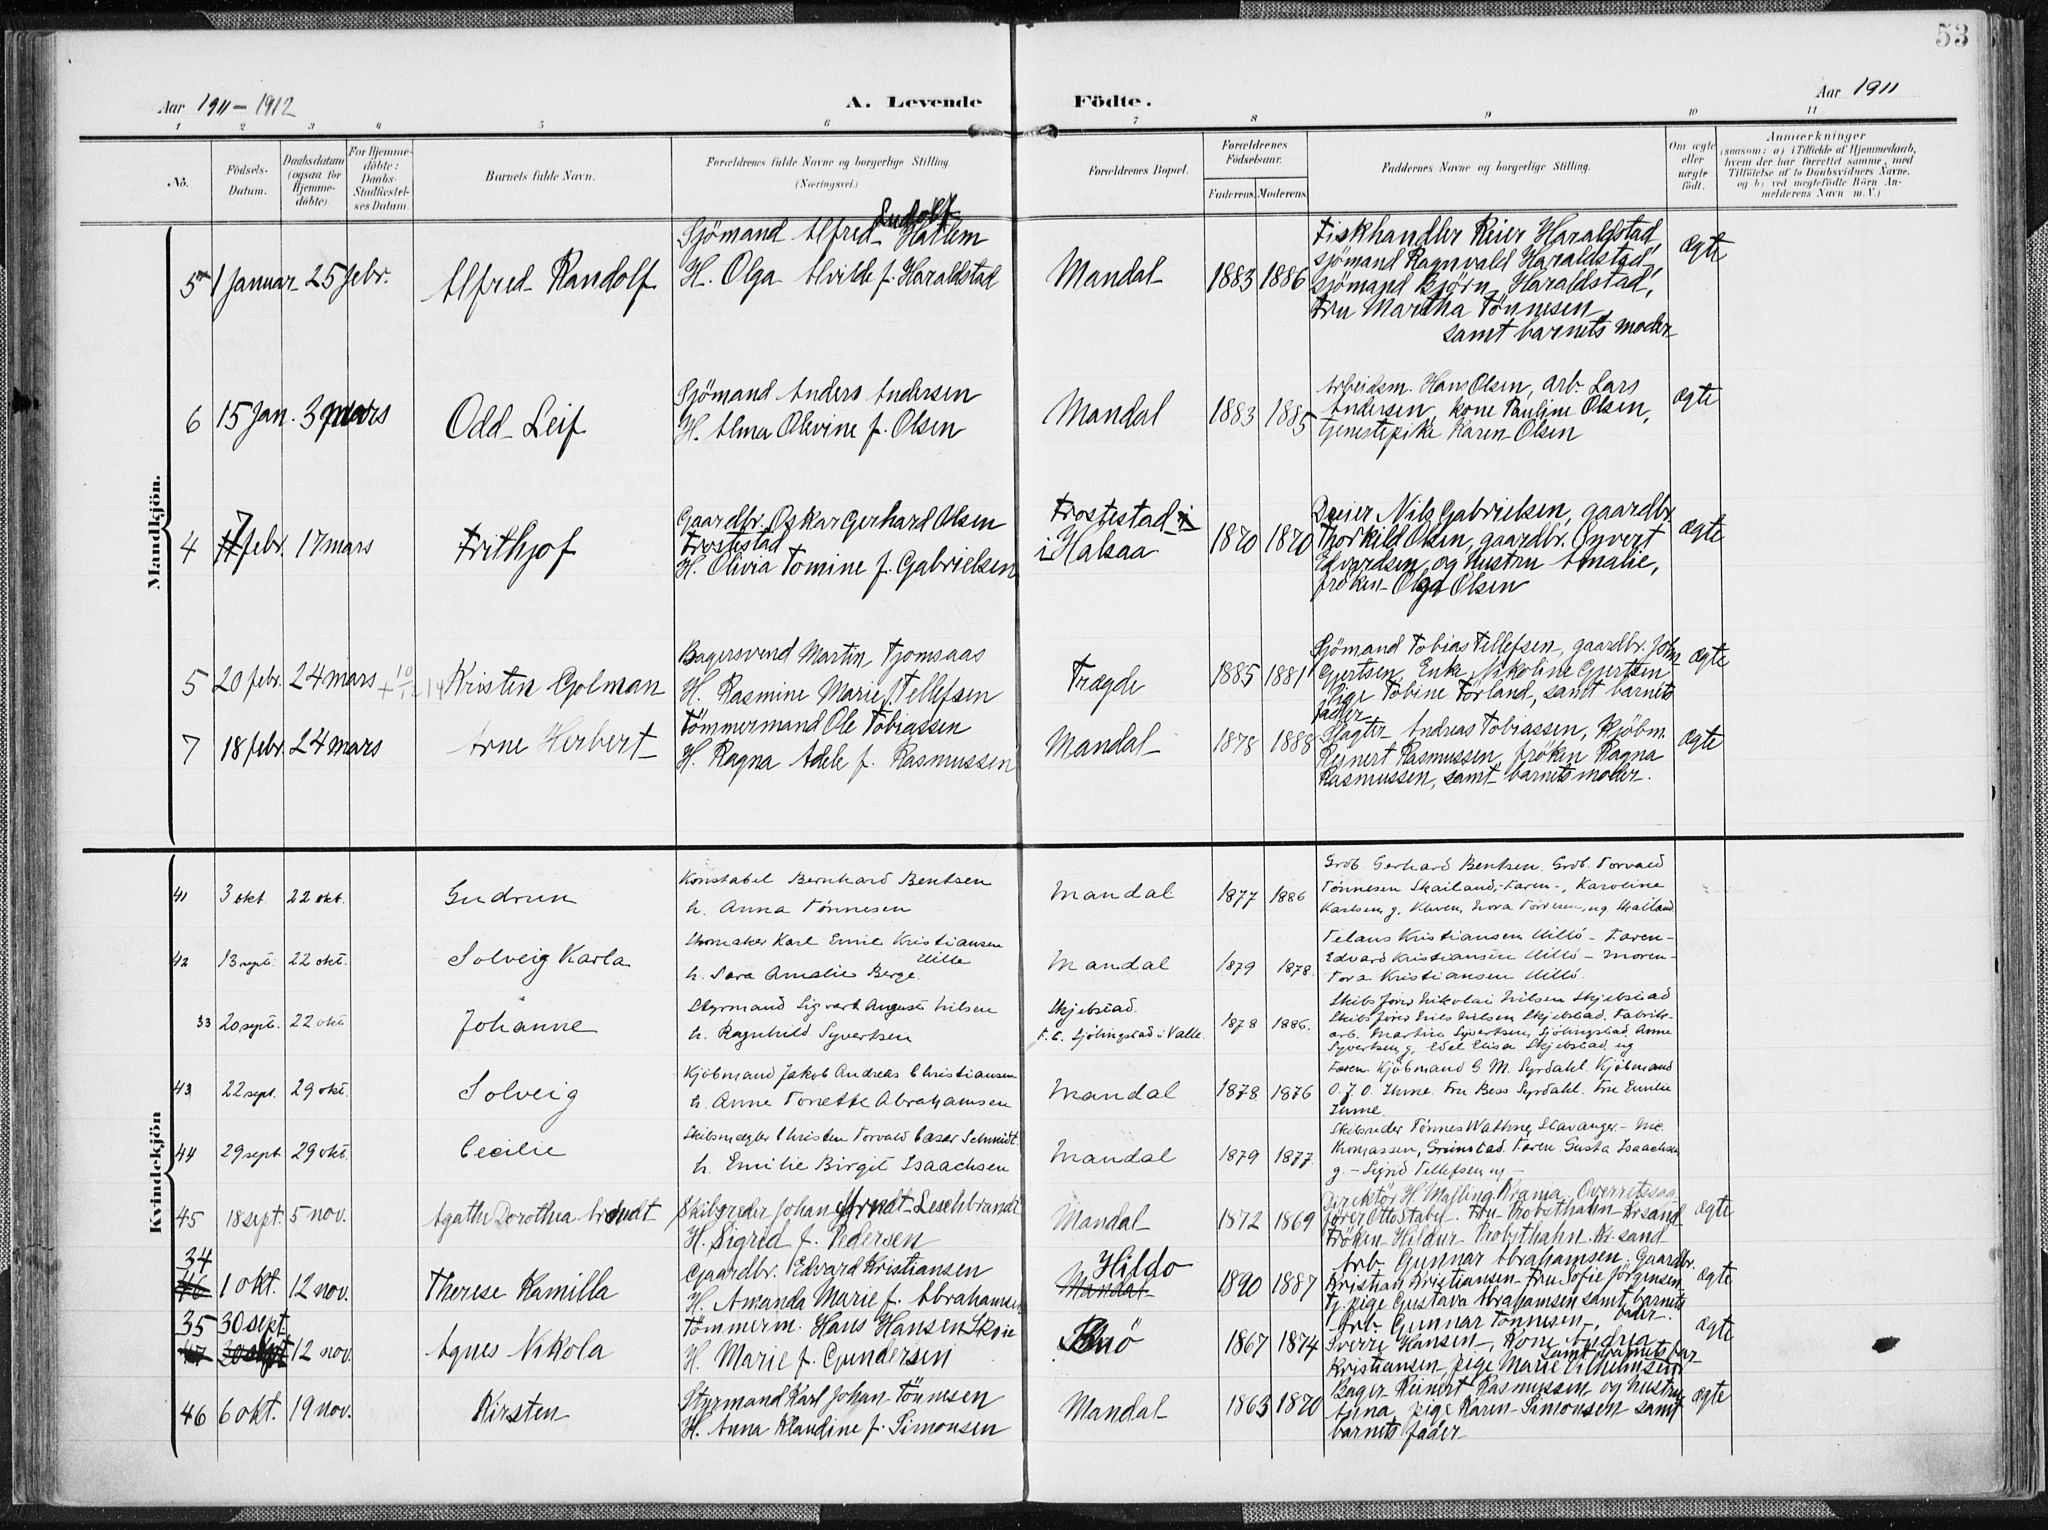 53
Aar 1911-1912
A. Levende
Födte.
Aar 1911
1 2 3 4 5 6 7 8 9 10 11
No.
Födsels-Datum.
Daabsdatum (ogsaa for Hjemmedöbte).
For Hjemmedöbte: Daabs-Stadfæstelses Datum.
Barnets fulde Navn.
Forældrenes fulde Navne og borgerlige Stilling. (Næringsvei.)
Forældrenes Bopæl.
Forældrenes Födselsaar.
Faderens. Moderens.
Faddernes Navne og borgerlige Stilling.
Om ægte eller uægte födt.
Anmærkninger
(saasom: a) i Tilfælde af Hjemmedaab, hvem der har forrettet samme, med Tilföielse af to Daabsvidners Navne, og b) ved uægtefödte Börn Anmelderens Navn m. V.)
Mandkjön.
5 1 Januar 25 febr. Alfred Randolf
Sjömand Alfred Ludolf Hatlem
H. Olga Alvilde f. Haraldstad
Mandal 1883 1886
Fiskhandler Reier Haraldstad,
sjömand Ragnvald Haraldstad,
sjömand Björn Haraldstad,
Fru Martha Tönnesen,
samt barnets moder
ægte
6 15 Jan. 3 mars Odd Leif
Sjömand Anders Andersen
H. Alma Olevine f. Olsen
Mandal 1883 1885
Arbeidsm. Hans Olsen, arb. Lars
Andersen, kone Pauline Olsen,
tjenestepike Karen Olsen
ægte
4 7 febr. 17 mars Frithjof
Gaardbr. Oskar Gerhard Olsen
Frostestad
H. Olivia Tomine f. Gabrielsen
Frostestad
i Halsaa
1870 1870
Nils Gabrielsen, gaardbr.
Thorkild Olsen, gaardbr. Syvert
Edvardsen og hustru Amalie,
fröken Olga Olsen
ægte
5 20 febr. 24 mars + 10/12 14 Kristen Golman
Bagersvend Martin Tjomsaas
H. Rasmine Marie f. Tellefsen
Trægde 1885 1881
Sjömand Tobias Tellefsen, gaardbr. John
Gjertsen, Enke Nikoline Gjertsen
Pige Tobine Törland, samt barnets
fader
ægte
7 18 febr. 24 mars Arne Herbert
Tömmermand Ole Tobiassen
H. Ragna Adele f. Rasmussen
Mandal 1878 1888
Slagter Andreas Tobiassen, kjöbm.
Reinert Rasmussen, fröken Ragna
Rasmussen, samt barnets moder.
ægte
Kvindekjön
41 3 okt. 22 okt. Gudrun
Konstabel Bernhard Bentsen
h. Anna Tönnesen
Mandal 1877 1886
Grob. Gerhard Bentsen. Grob. Torvald
Tönnesen Skailand, Faren, Karoline
Karlsen g. Kleven, Nora Tönnesen, ug Skailand
42 13 sept. 22 okt. Solveig Karla
Skomaker Karl Emil Kristiansen
Uillö
h. Sara Amalie Berge.
Mandal 1879 1878.
Telaus Kristiansen Uillö - Faren -
Edvard Kristiansen Uillö - moren -
Tora Kristiansen Uillö.
33 20 sept. 22 okt Johanne
Styrmand Sigvart August Nilsen
h. Ragnhild Syvertsen
Skjebstad.
F. t. Sjölingstad i Valle.
1878 1886.
Skibsförer Nikolai Nilsen Skjebstad
Skibsförer Nils Nilsen Skjebstad. Fabrik-
arb. Martin Syvertsen, Sjölingstad. Anne
Syvertsen g. Edel Elisa Skjebstad ug
43 22 sept. 29 okt. Solveig
Kjöbmand Jakob Andreas Christiansen
h. Anne Tonette Abrahamsen
Mandal 1878 1876
Faren. Kjöbmand G. M. Syrdahl. Kjöbmand
O. J. O. Ihme. Fru Bess Syrdahl. Fru Emilie
Ihme.
44 29 sept 29 okt. Cecilie
Skibsmægler Christen Torvald Cæsar Schmidt.
h. Emilie Birgit Isaachsen
Mandal 1879 1877.
Skibsreder Tönnes Wathne Stavanger -
Thomassen, Grimstad. Faren Gusta Isaachsen
g. - Sigrid Tellefsen ug -
45 18 sept. 5 nov. Agathe Dorothea Arendt
Skibsreder Johan Arndt Leschbrandt
H. Sigrid f. Pedersen
Mandal 1872 1869
Direktör H. Mafling Krama. Overretssag-
förer Otto Stabel. Fru Probsthahn Krsand
Fröken Hildur Probsthahn Kr.sand
ægte
34
46 1 okt. 12 nov. Therese Kamilla
Gaardbr. Edvard Kristiansen
H. Amanda Marie f. Abrahamsen
Hildo
Mandal
1890 1887
Arb. Gunnar Abrahamsen. Gaardbr.
Kristian Kristiansen Fru Sofie Jörgensen
Tj. pige Gustava Abrahamsen samt barnets
fader.
ægte
35 30 sept.
47 30 sept 12 nov. Agnes Nikola
Tömmerm. Hans Hansen Skoie
H. Marie f. Gundersen
1867 1874
Arb. Gunnar Tönnesen,
Sverre Hansen, Kone Andrea
Kristiansen, pige Marie Vilhelmsen
ægte
46 6 okt. 19 nov. Kirsten
Styrmand Karl Johan Tönnesen
H. Anna Klaudine f. Simonsen
Mandal 1863 1870
Bager Reinert Rasmussen og hustru
Anna, pige Karen Simonsen samt
barnets fader
ægte